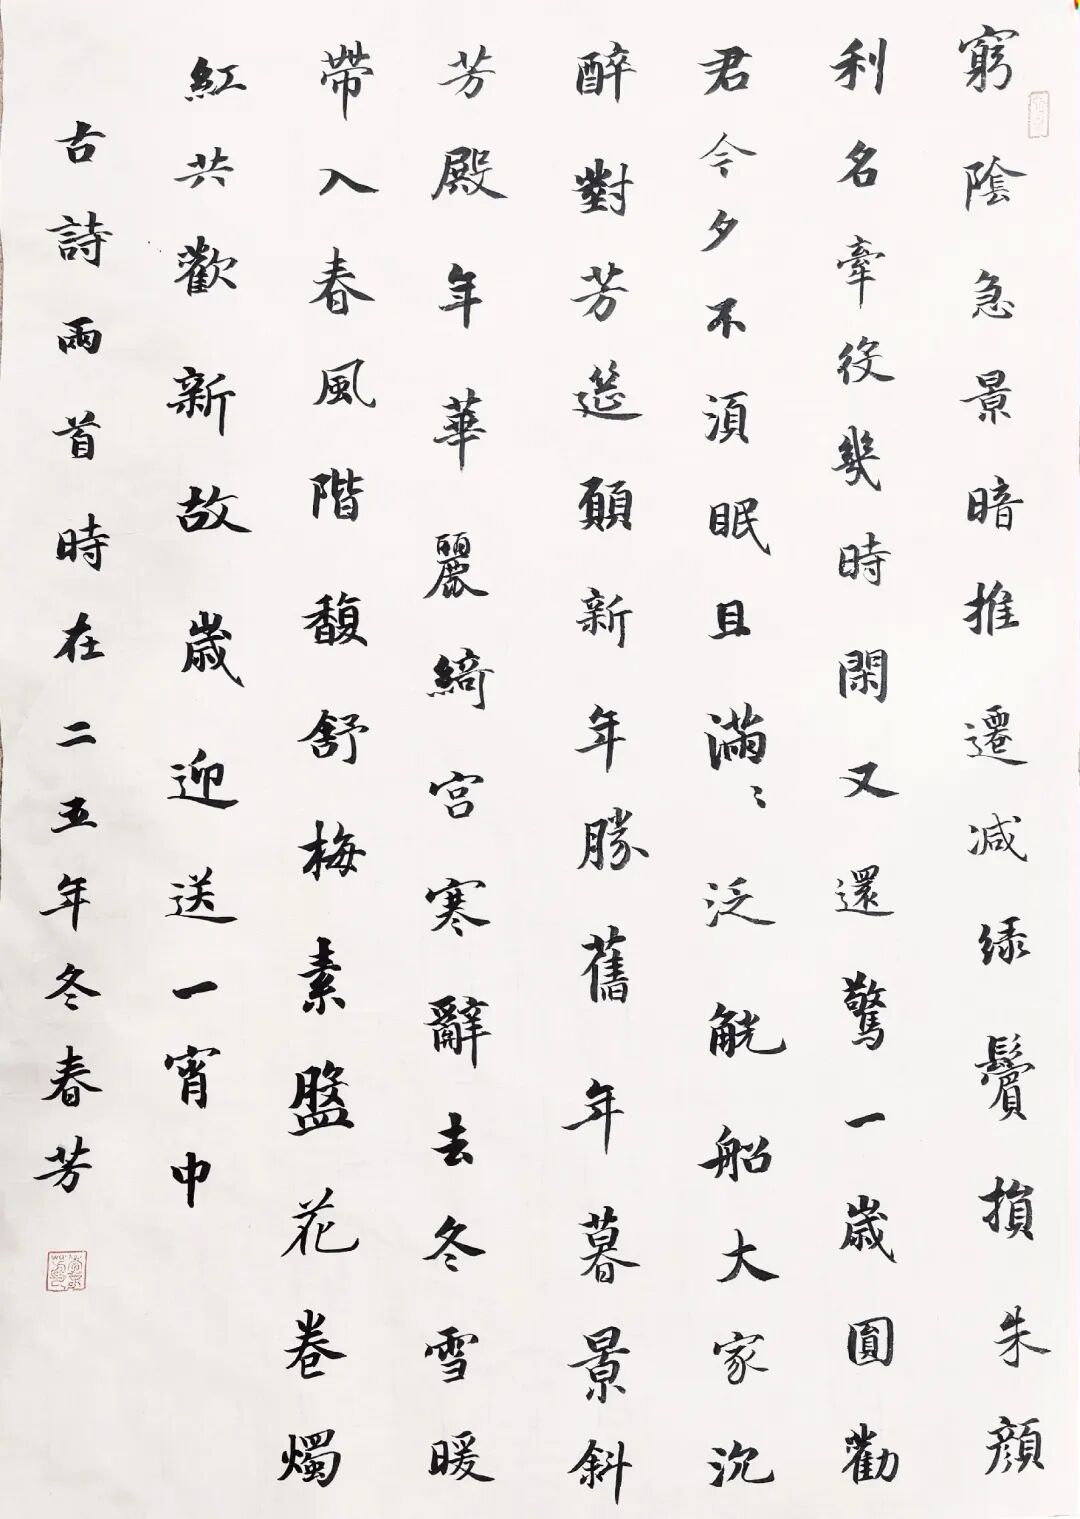 窮陰急景暗推遷减绿鬢損朱顔
利名牽役幾時閑又還驚一歲圓勸
君今夕不須眠且滿〻泛觥船大家沉
醉對芳筵願新年勝舊年暮景斜
芳殿年華麗綺宮寒辭去冬雪暖
帶入春風階馥舒梅素盤花卷燭
紅共歡新故歲迎送一宵中
古詩兩首時在二五年冬春芳